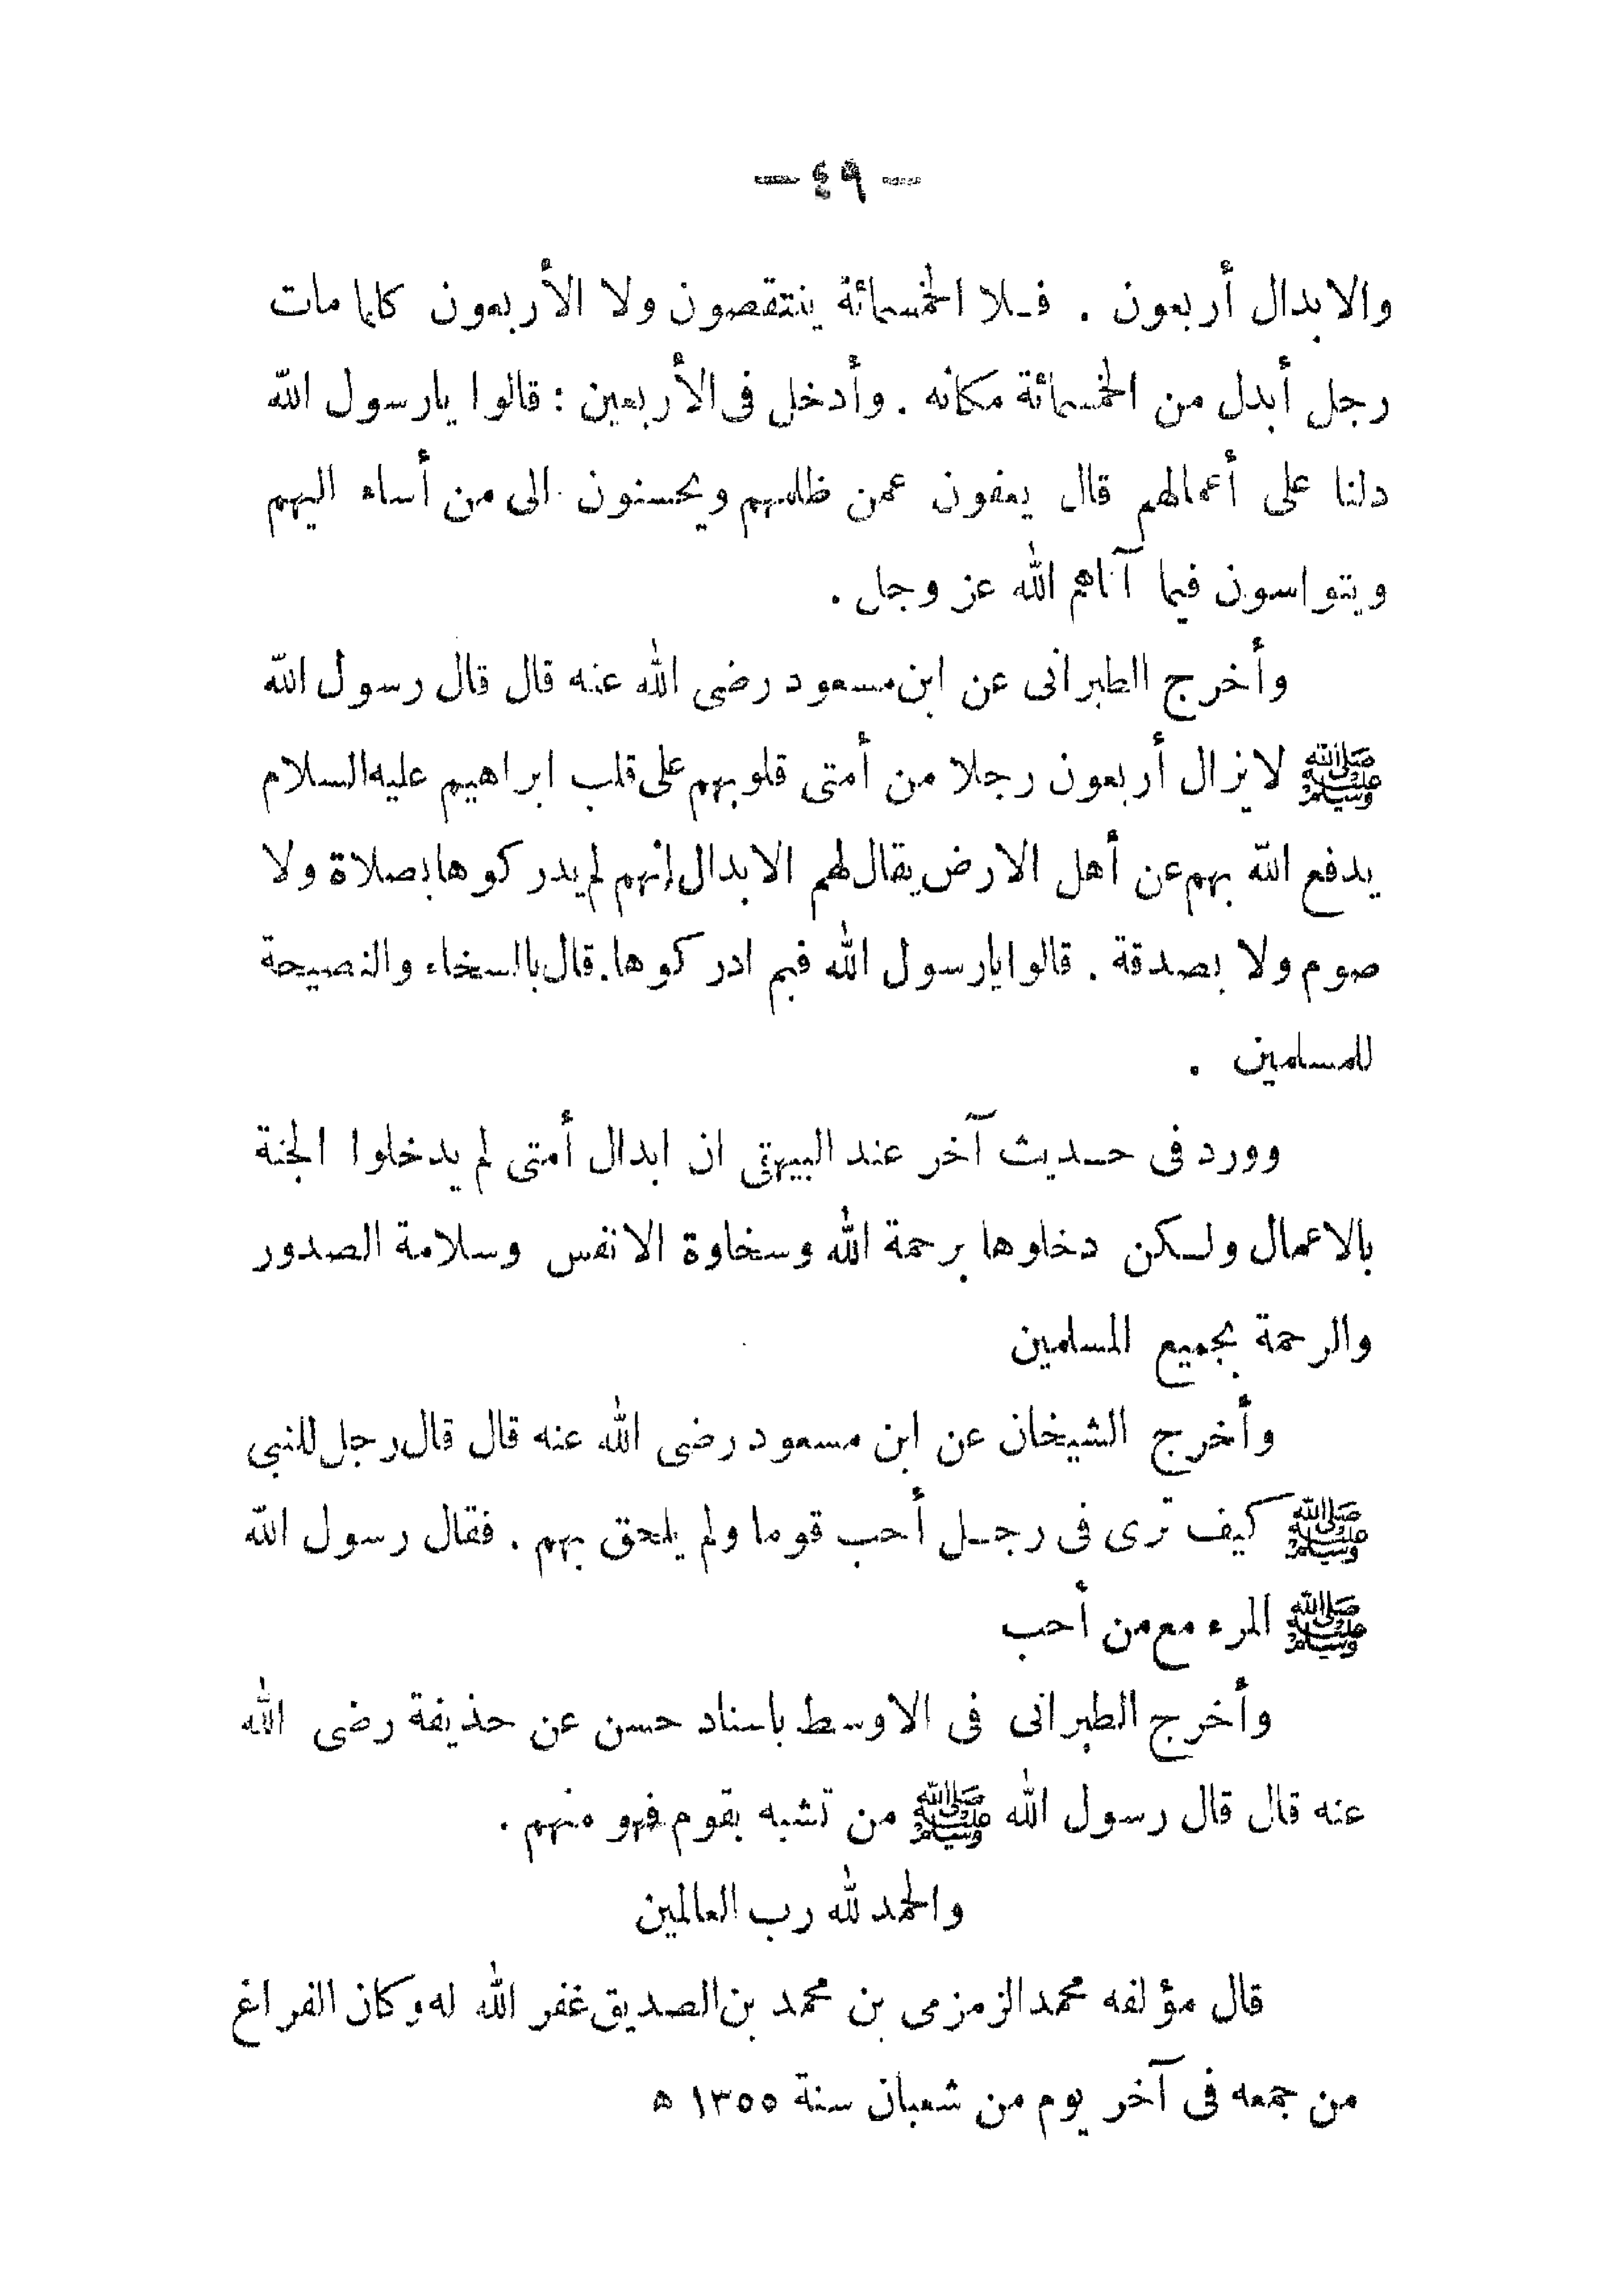 — ٤٩ —
والابدال أربعون . فـلا الخمسمائة ينتقصون ولا الأربعون كلما مات
رجل أبدل من الخمسمائة مكانه . وأدخل فى الأربعين : قالوا يارسول الله
دلنا على أعمالهم قال يعفون عمن ظلمهم ويحسنون الى من أساء اليهم
ويتواسون فيما آتاهم الله عز وجل .
وأخرج الطبرانى عن ابن مسعود رضى الله عنه قال قال رسول الله
ﷺ لايزال أربعون رجلا من أمتى قلوبهم على قلب ابراهيم عليه السلام
يدفع الله بهم عن أهل الارض يقال لهم الابدال إنهم لم يدركوها بصلاة ولا
صوم ولا بصدقة . قالوا يارسول الله فبم ادركوها. قال بالسخاء والنصيحة
للمسلمين .
وورد فى حـديث آخر عند البيهقى ان ابدال أمتى لم يدخلوا الجنة
بالاعمال ولـكن دخلوها برحمة الله وسخاوة الانفس وسلامة الصدور
والرحمة بجميع المسلمين
وأخرج الشيخان عن ابن مسعود رضى الله عنه قال قال رجل للنبى
ﷺ كيف ترى فى رجـل أحب قوما ولم يلحق بهم . فقال رسول الله
ﷺ المرء مع من أحب
وأخرج الطبرانى فى الاوسط باسناد حسن عن حذيفة رضى الله
عنه قال قال رسول الله ﷺ من تشبه بقوم فهو منهم .
والحمد لله رب العالمين
قال مؤلفه محمد الزمزمى بن محمد بن الصديق غفر الله له وكان الفراغ
من جمعه فى آخر يوم من شعبان سنة ١٣٥٥ ه